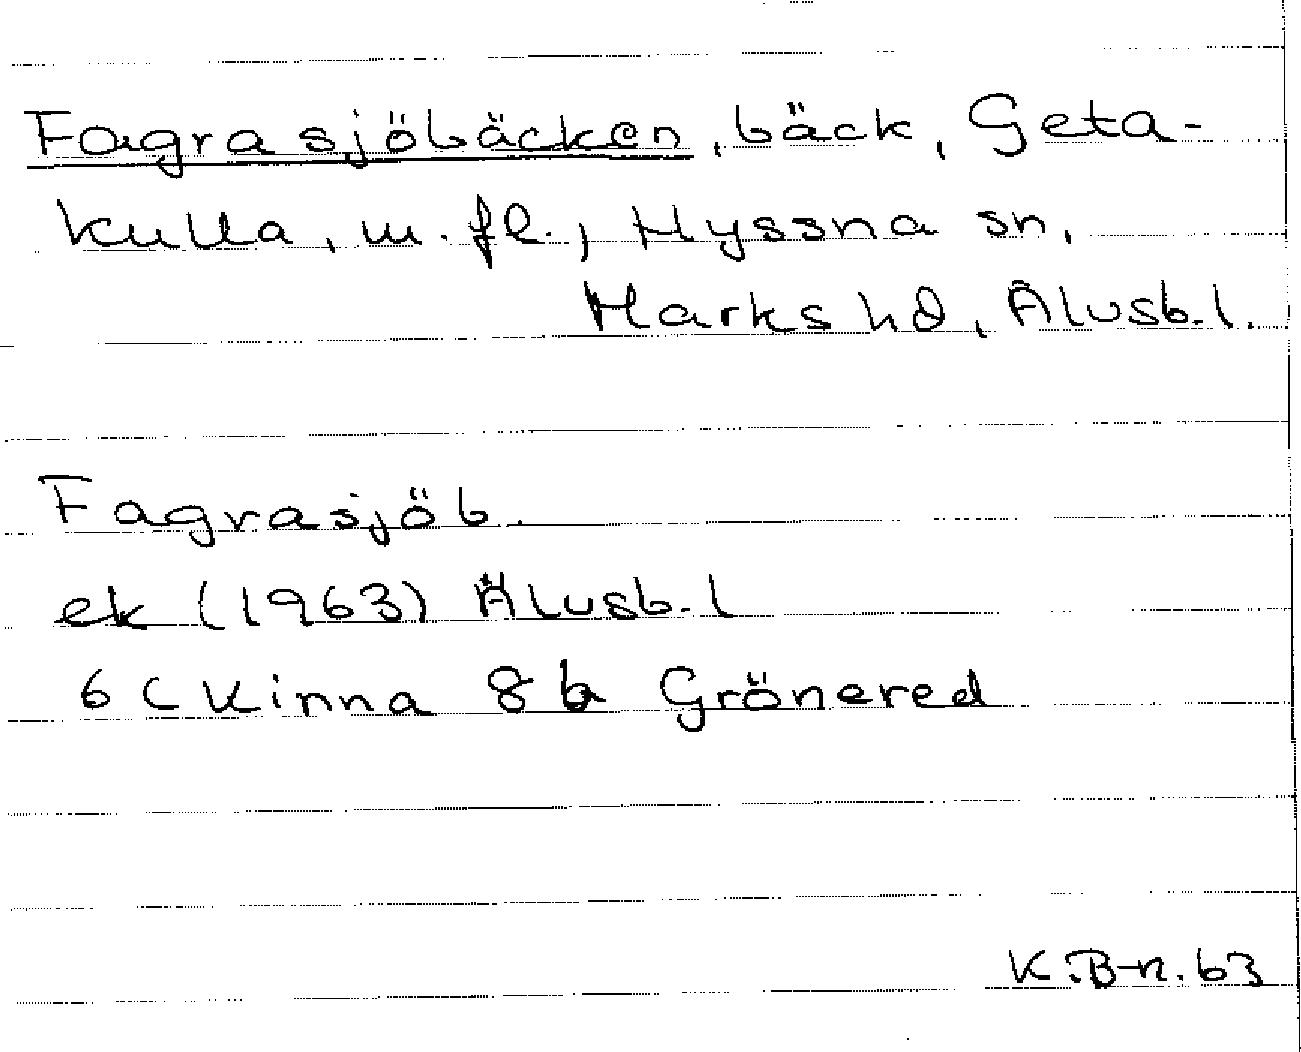 Fagrasjöbäcken, bäck, Geta-
kulla, m.fl., Hyssna sn,
Marks hd, Älvsb.l.
Fagrasjöb.
ek (1963) Älvsb.l
6 C Kinna 8 b Grönered
K.B-n. 63